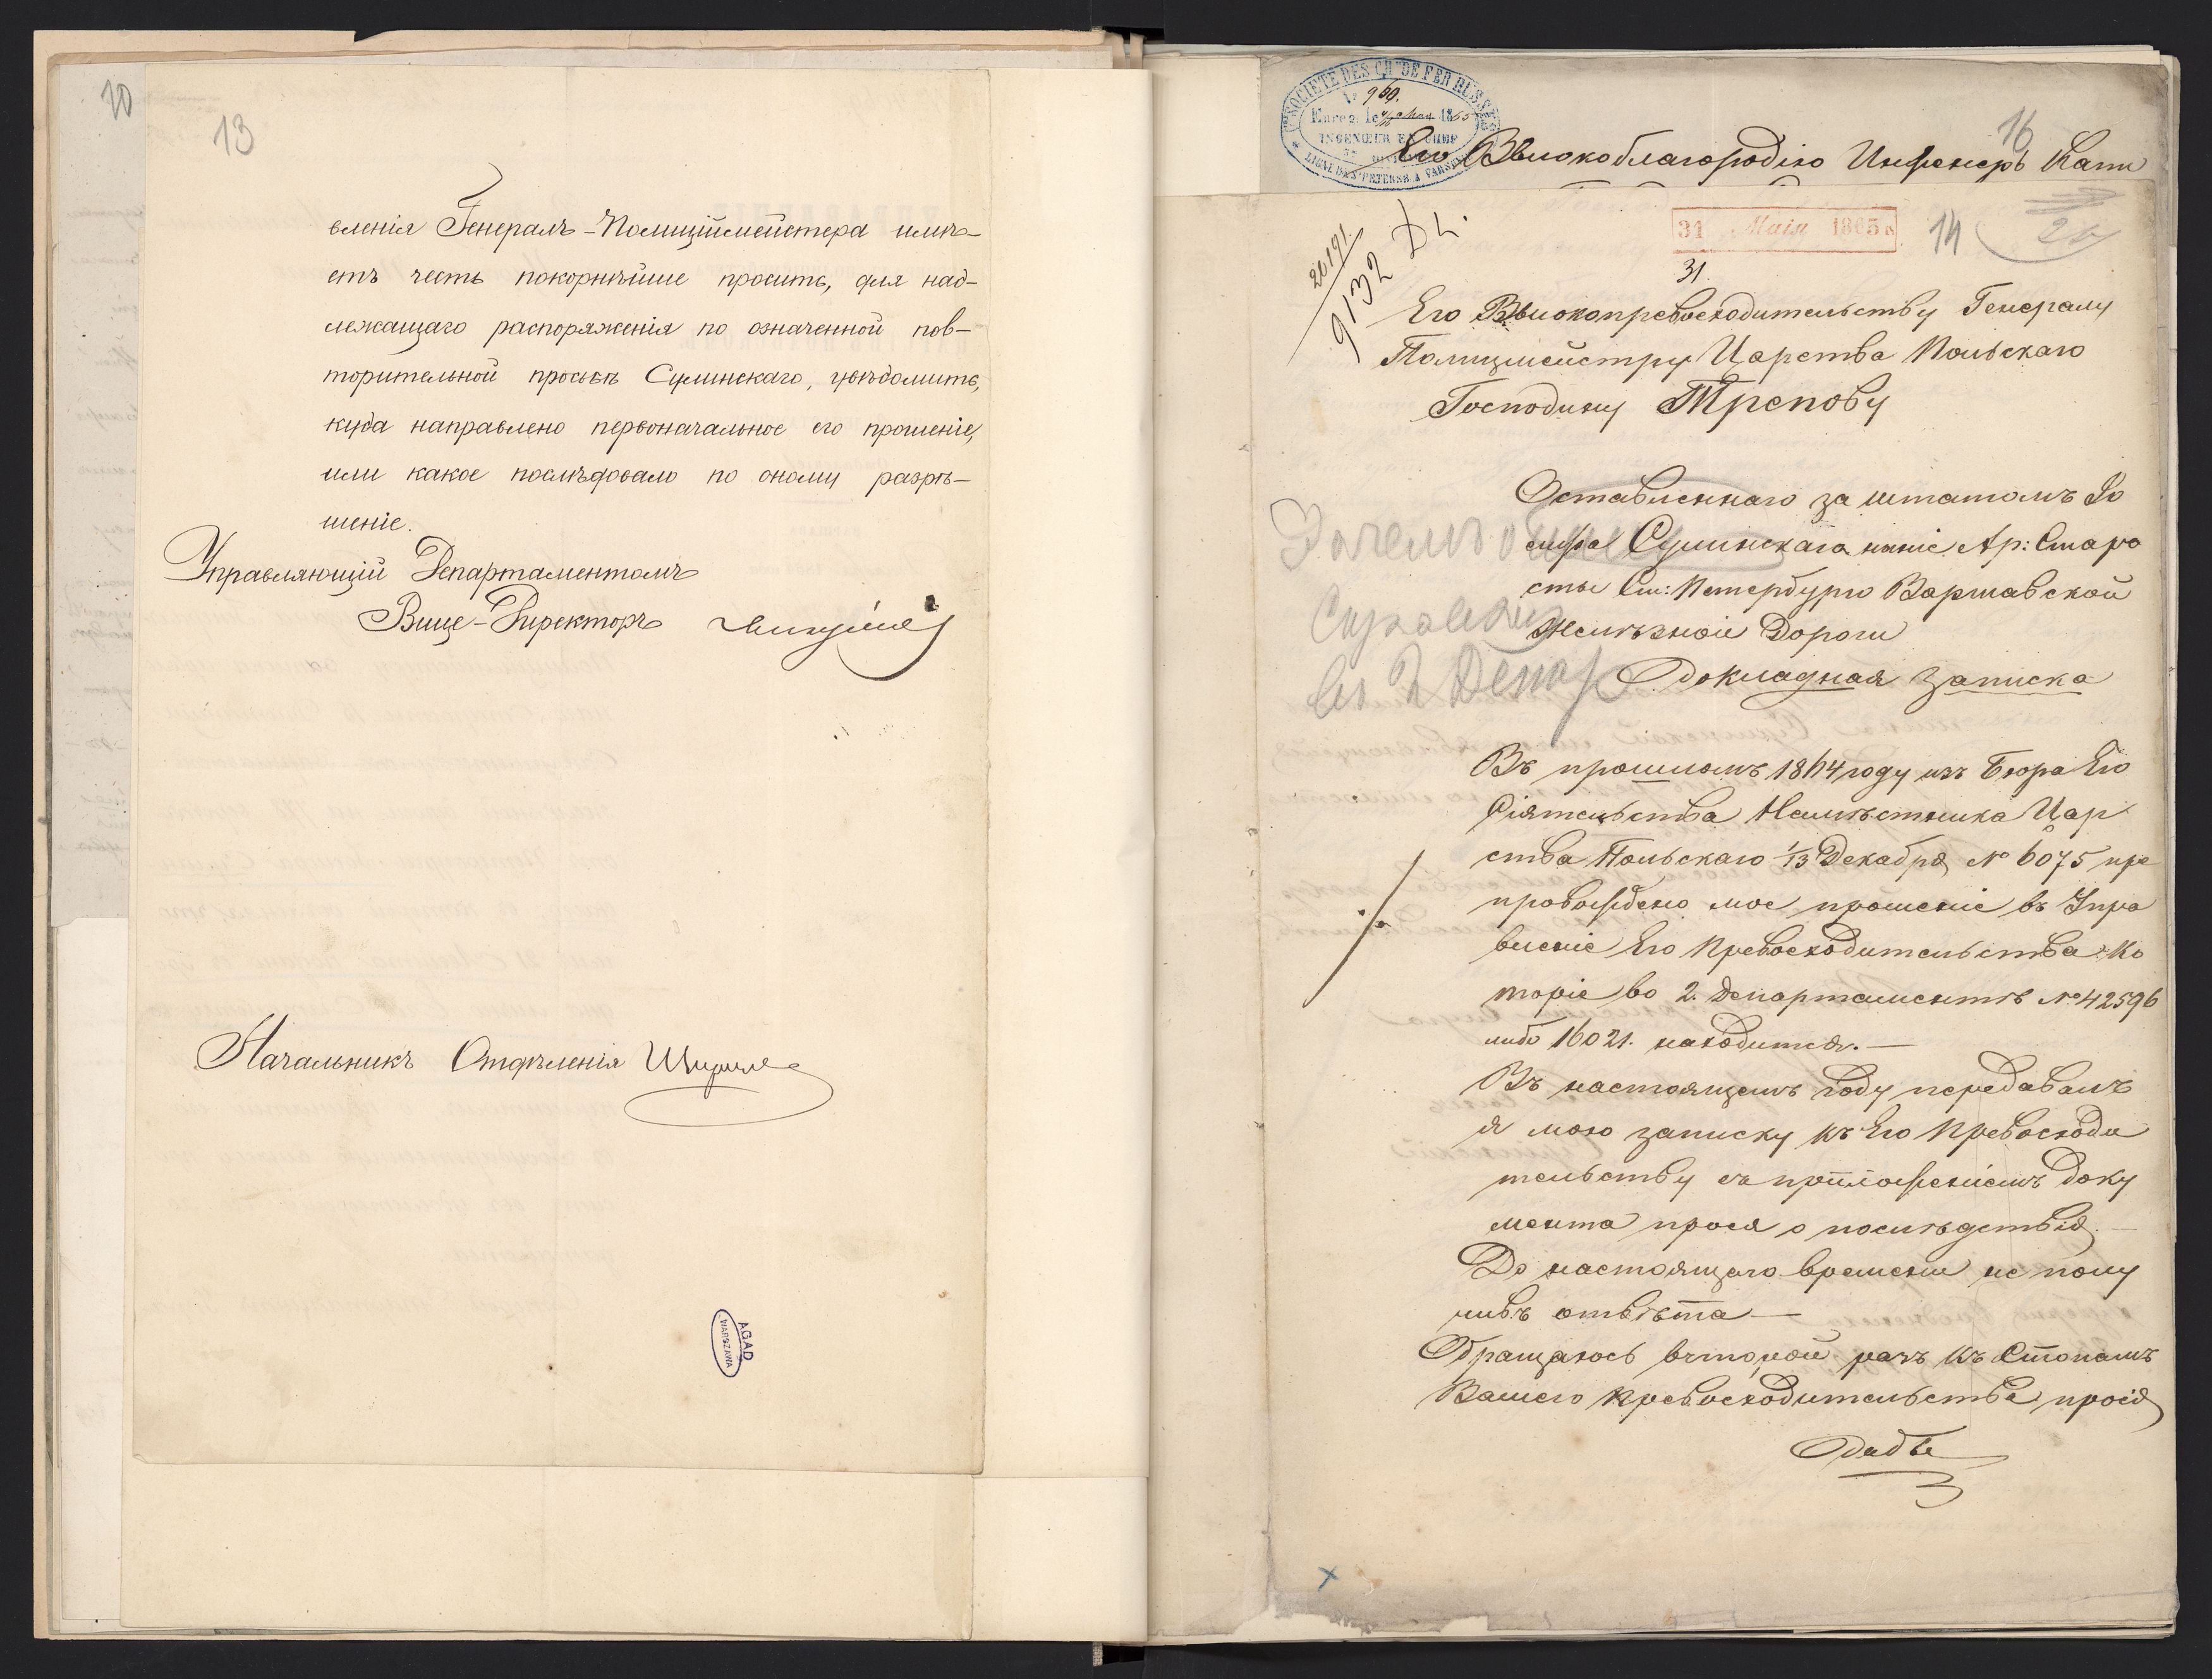 10
13
вленія Генералъ-Полиціймейстера имѣ-
етъ честь покорнѣйше просить, для над-
лежащаго распоряженія по означенной пов-
торительной просьбѣ Сулинскаго, увѣдомить,
куда направлено первоначальное его прошеніе,
или какое послѣдовало по оному разрѣ-
шеніе.
Управляющій Департаментомъ
Вице-Директоръ
Начальникъ Отдѣленія
AGAD
WARSZAWA
SOCIÉTÉ DES CH. DE FER RUSSES
№ 960.
Enreg. le 1865
INGENIEUR EN CHEF
LIGNE DE ST PETERSB. A VARSOVIE
16
Его Высокоблагородію Инженеръ Капи
31 Маія 1865
14
31.
20191.
9132
Его Высокопревосходительству Генералу
Полицмейстру Царства Польскаго
Господину Трепову
Оставленнаго за штатомъ Іо
сифа Сулинскаго ныніе Ар: Старо
сты Ст: Петербурго Варшавской
Желѣзноіе Дороги
Докладная Записка
Въ прошломъ 1864 году изъ Бюра Его
Сіятельства Намѣстника Цар
ства Польскаго 1/13 Декабря № 6075 пре
провождено мое прошеніе въ Упра
вленіе Его Превосходительства Ко
торіе во 2. Департаментѣ № 42596
либо 16021. находится.—
Въ настоящемъ году передавалъ
я мою записку къ Его Превосходи
тельству съ приложеніемъ доку
мента прося о послѣдствія.—
До настоящаго времени не полу
чивъ отвѣта—
Обращаюсь вторój разъ къ Стопамъ
Вашего Превосходительства прося